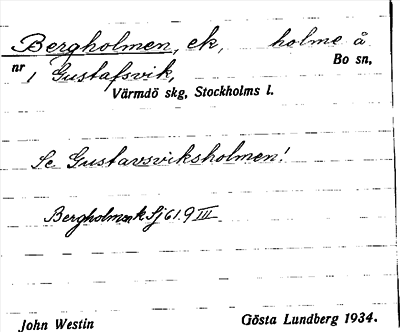 Bergholmen, ek, holme å
nr 1 Gustafsvik, Bo sn,
Värmdö skg, Stockholms l.
Se Gustavsviksholmen!
Bergholmen Sj 61.9 III
John Westin Gösta Lundberg 1934.